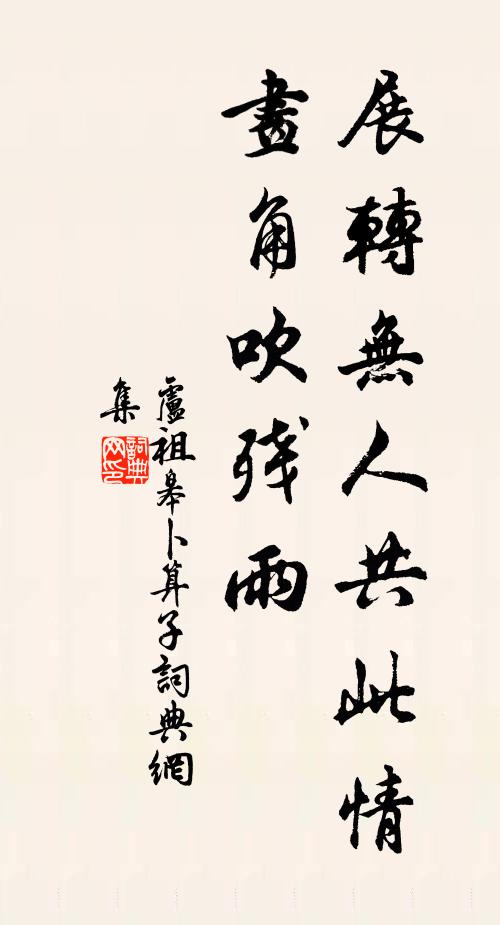 展轉無人共此情
畫角吹殘雨
盧祖皋卜算子詞典網
集
詞典網印